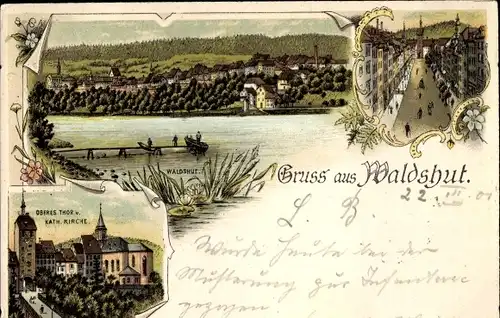 WALDSHUT.
Gruss aus Waldshut.
OBERES THOR u.
KATH. KIRCHE.
22. III. 01
L. B.
Wurde heute bei der
Musterung zur Infanterie
gezogen.